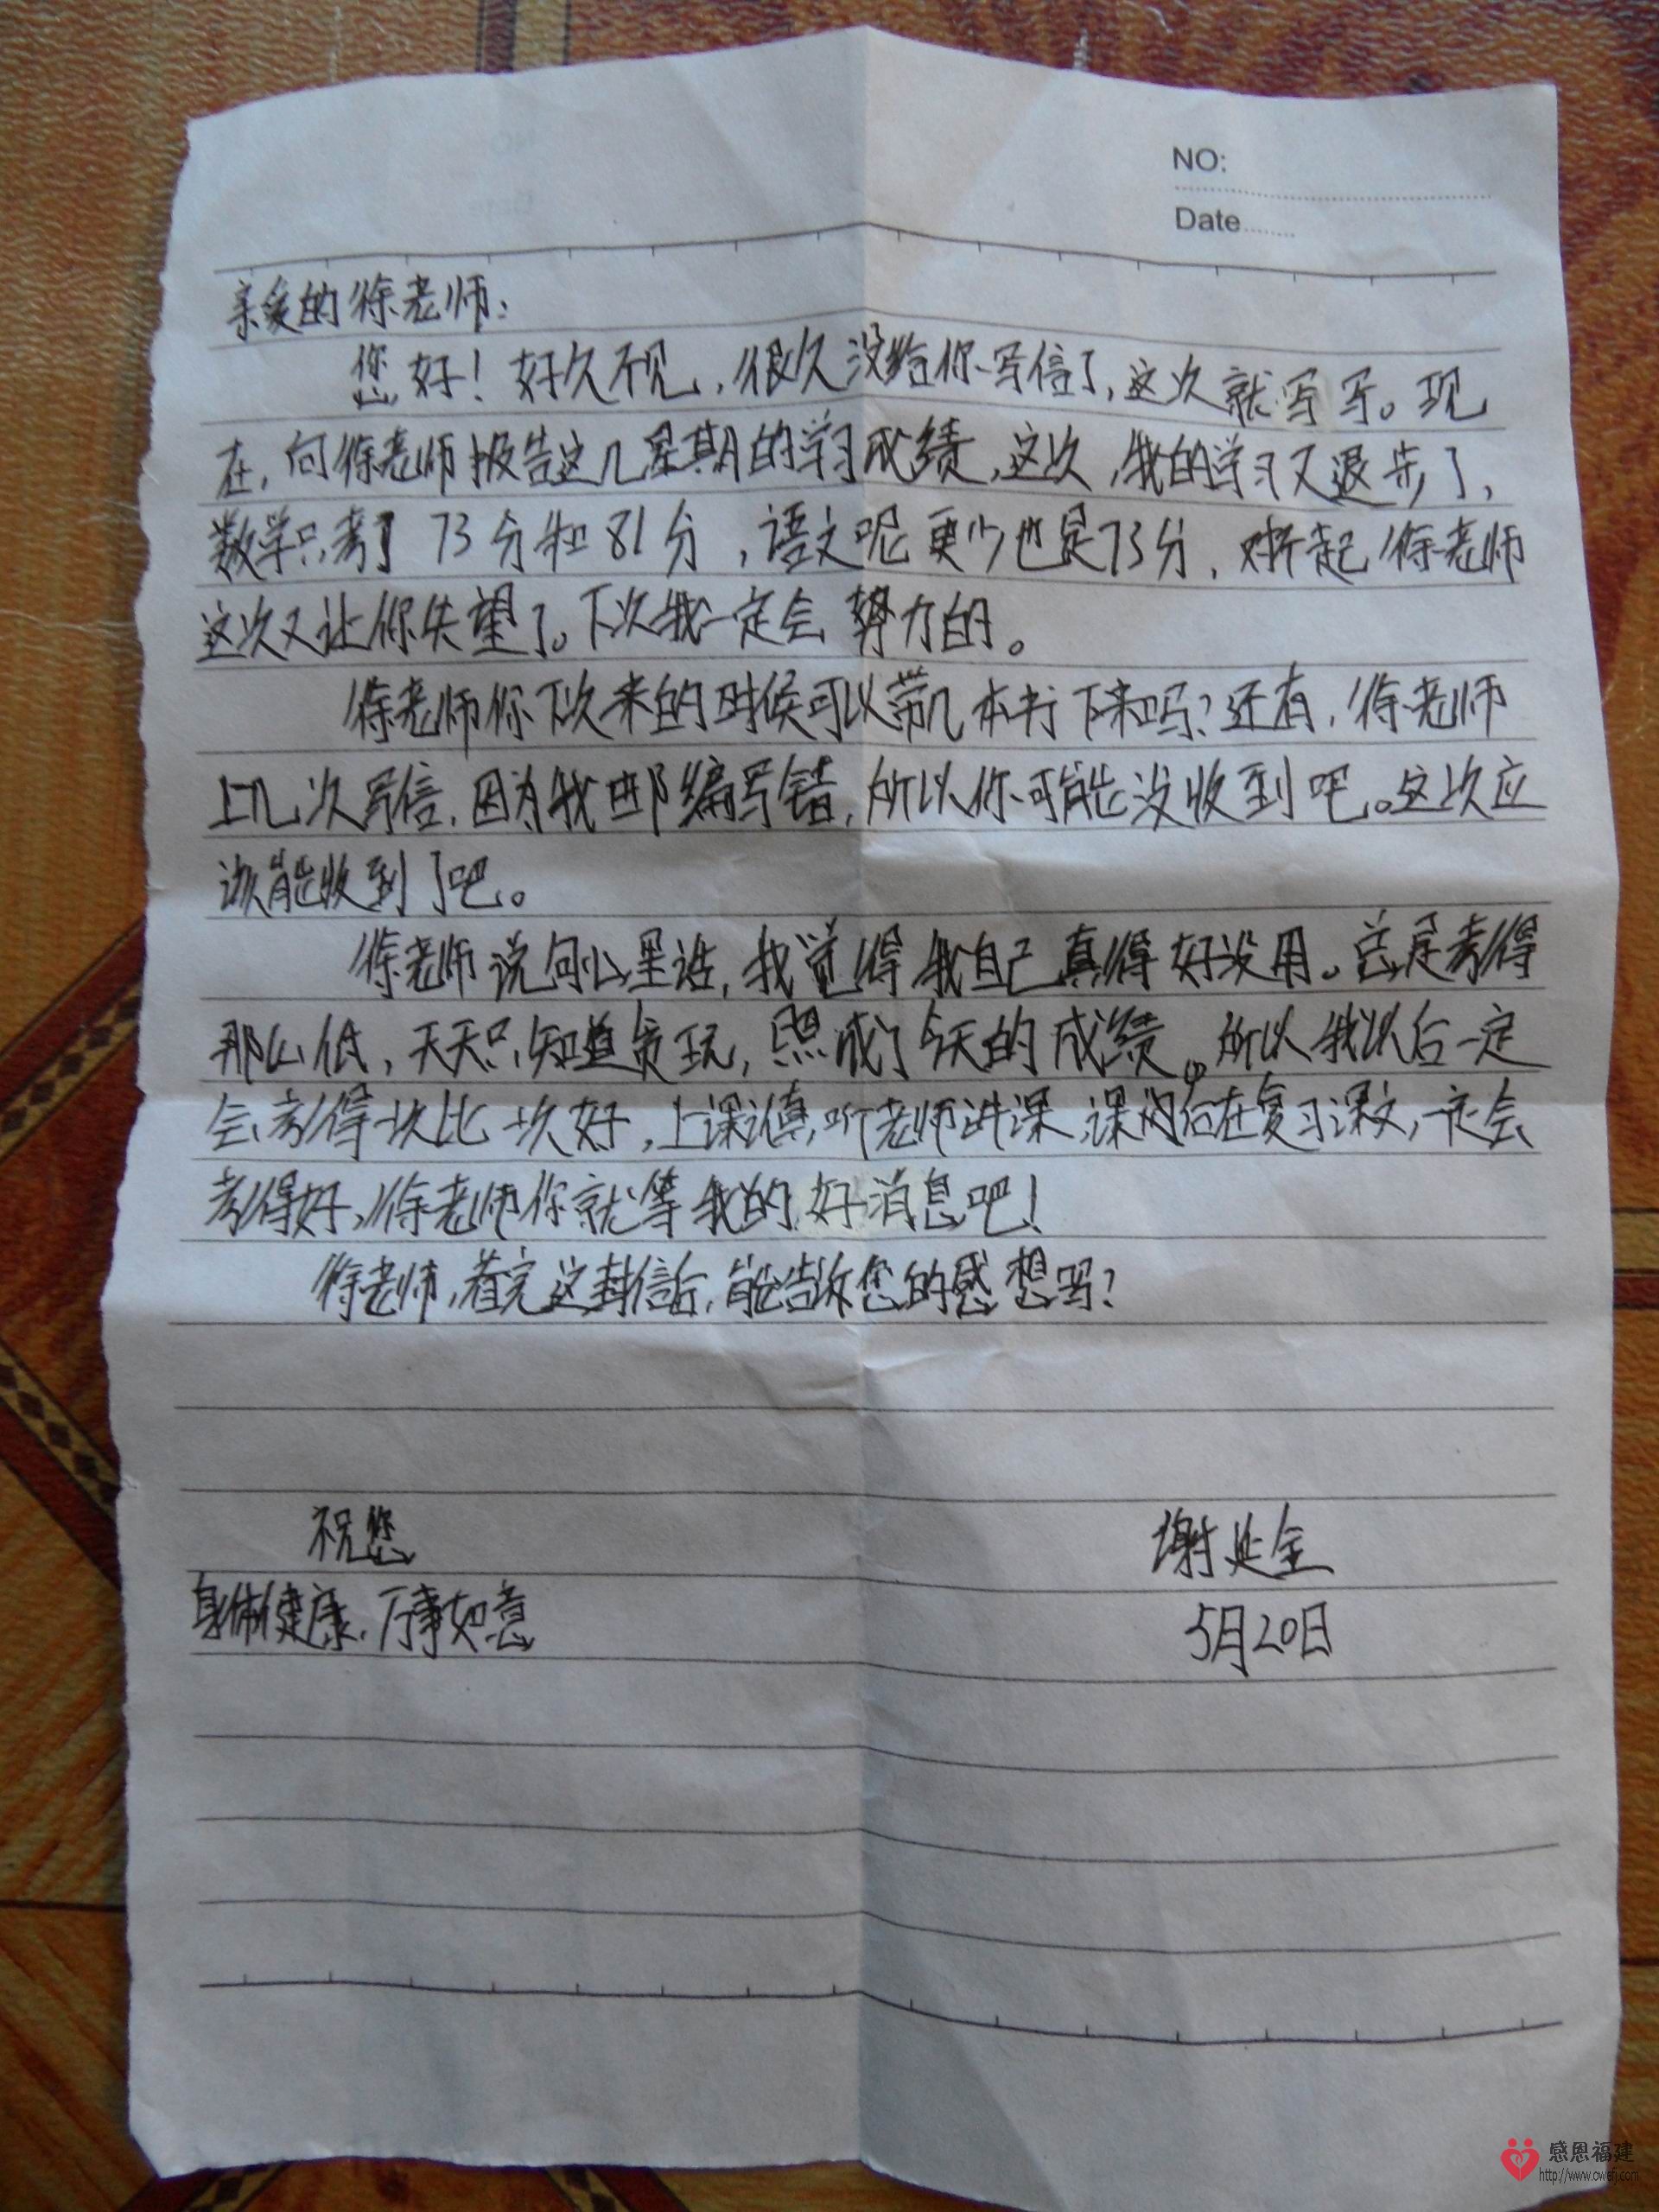 NO:
Date
亲爱的徐老师:
您好!好久不见,很久没给你写信了,这次就写写。现
在,向徐老师报告这几星期的学习成绩,这次,我的学习又退步了,
数学只考了73分和81分,语文呢更少也是73分,对不起徐老师
这次又让你失望了。下次我一定会努力的。
徐老师你下次来的时候可以带几本书下来吗?还有,徐老师
上几次写信,因为我邮编写错,所以你可能没收到吧。这次应
该能收到了吧。
徐老师说句心里话,我觉得我自己真得好没用。总是考得
那么低,天天只知道贪玩,照成了今天的成绩。所以我以后一定
会考得一次比一次好,上课认真,听老师讲课,课间后在复习课文,一定会
考得好,徐老师你就等我的好消息吧!
徐老师,看完这封信后,能告诉您的感想吗?
祝您
身体健康,万事如意
谢延全
5月20日
感恩福建
http://www.owefj.com